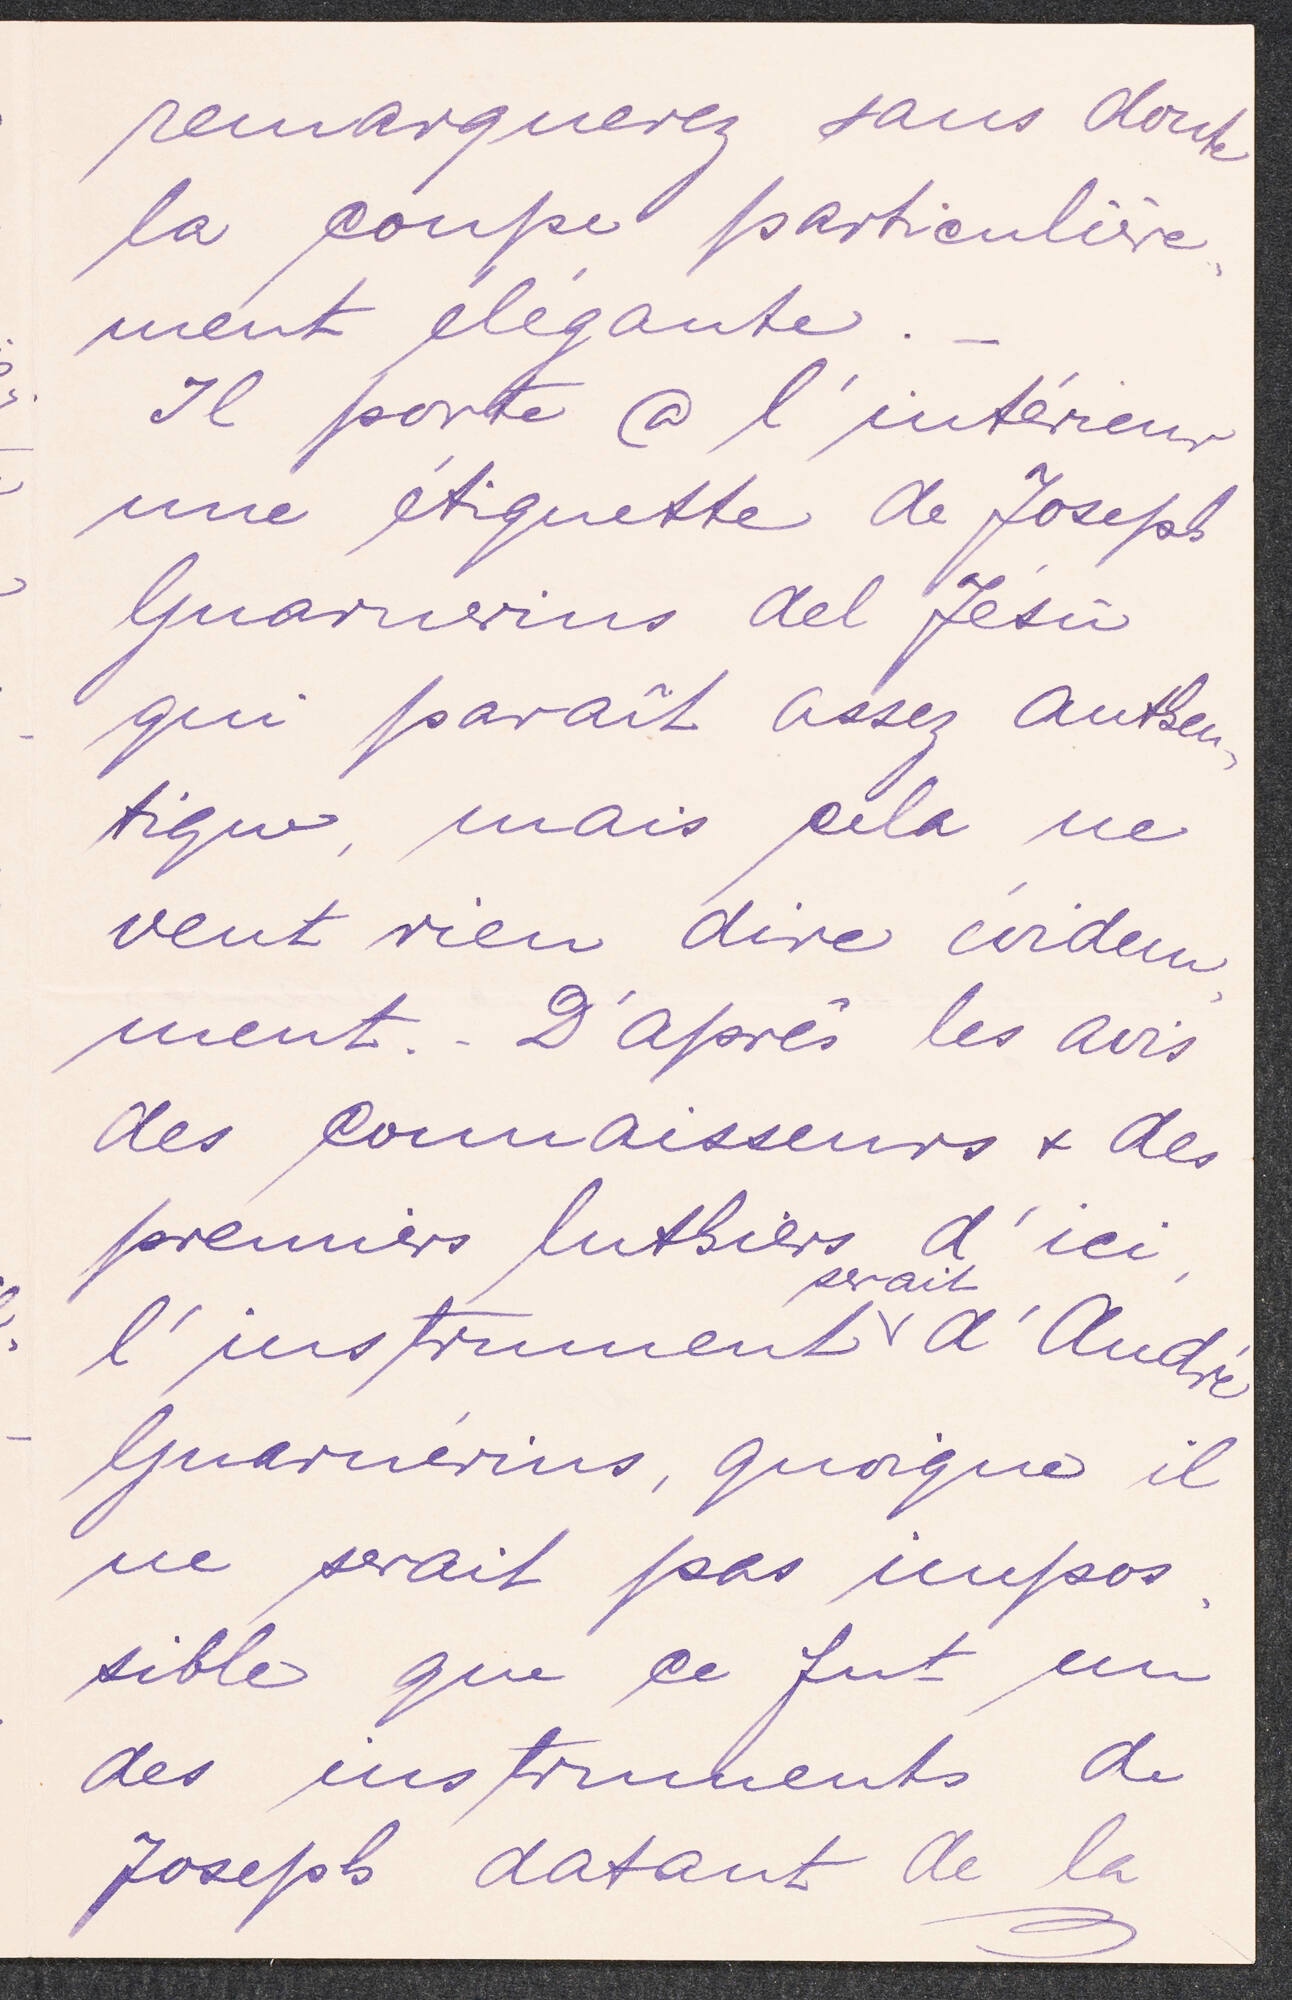 remarquerez sans doute
la coupe particulière,
ment élégante. _
Il porte @ l'intérieur
une étiquette de Joseph
Guarnerius del Jésù
qui paraît assez authen,
tique, mais cela ne
veut rien dire évidem,
ment. - D'après les avis
des connaisseurs & des
premiers luthiers d'ici,
serait
l'instrument v d'André
Guarnérius, quoique il
ne serait pas impos,
sible que ce fut un
des instruments de
Joseph datant de la